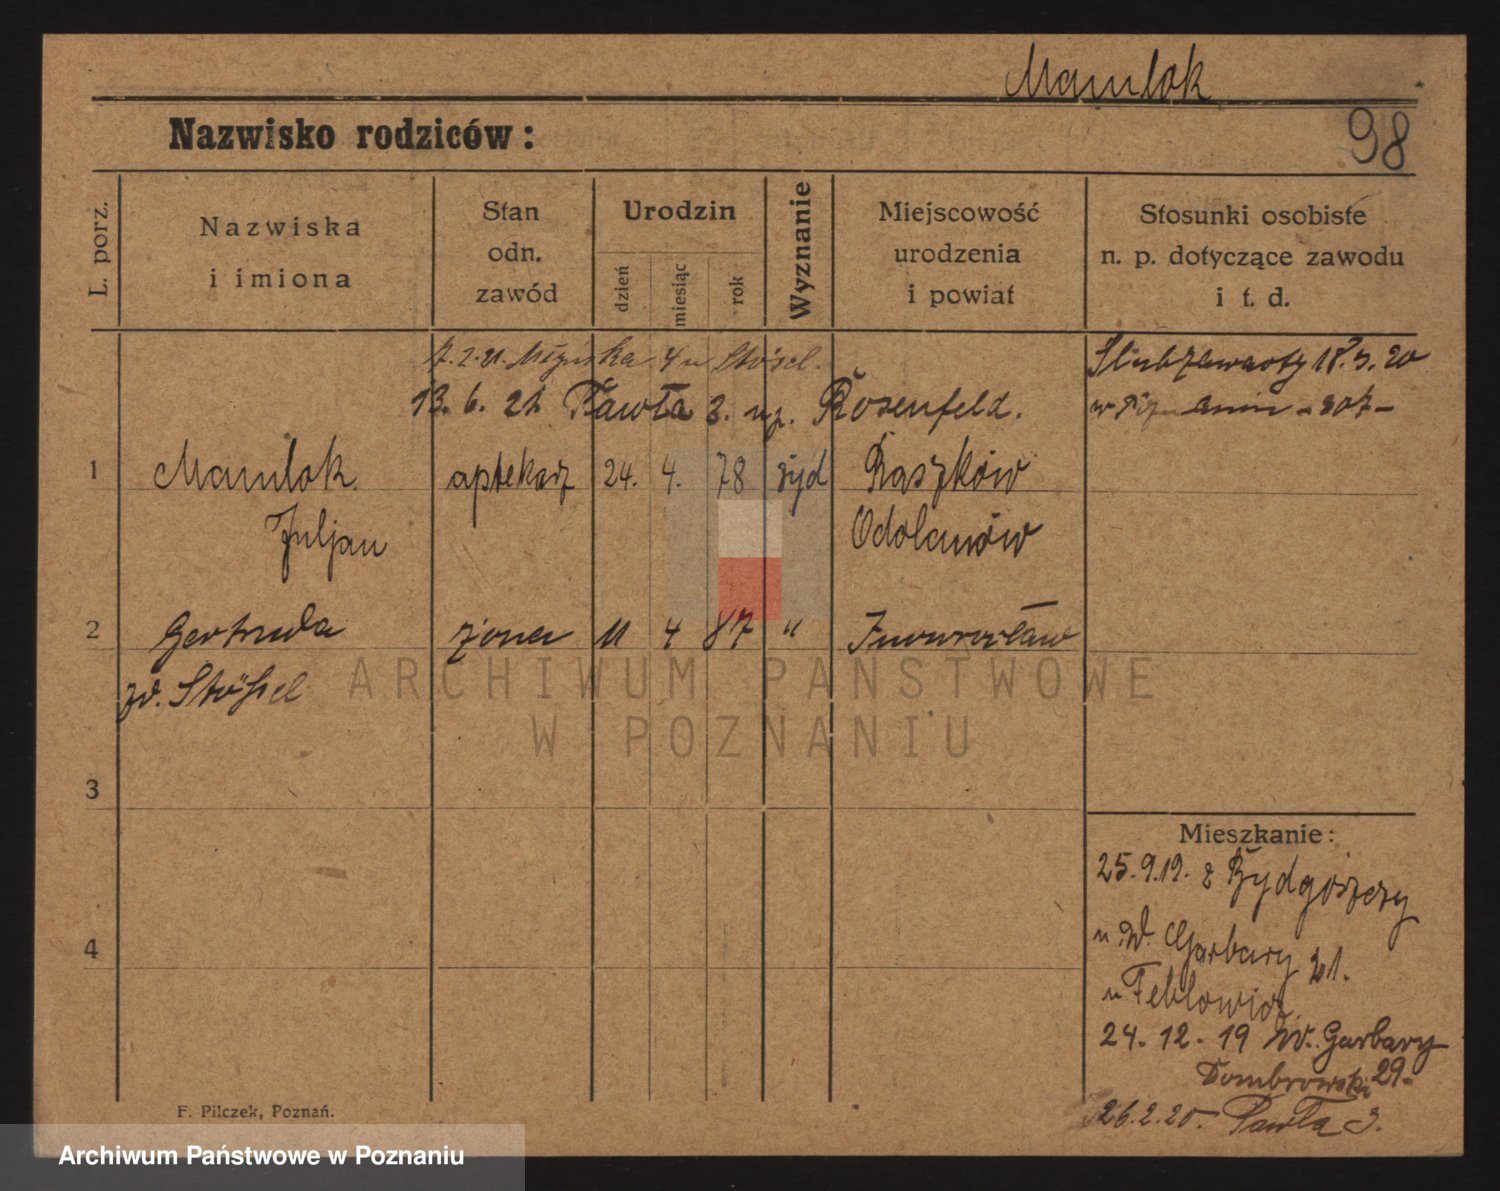 Mamlok
Nazwisko rodziców:
98
L. porz.
Nazwiska
i imiona
Stan
odn.
zawód
Urodzin
dzień
miesiąc
rok
Wyznanie
Miejscowość
urodzenia
i powiat
Stosunki osobiste
n. p. dotyczące zawodu
i t. d.
7.2.21. 4 u Stösel.
13.6.21 Pawła 3. Rosenfeld.
Ślub zawarty 18.5.20
w Poznaniu
1 Mamlok aptekarz 24. 4. 78 żyd Raszków
Juljan Odolanów
2 Gertruda żona 11 4 87 " Inowrocław
zd. Stößel
3
4
Mieszkanie:
25.9.19. z Bydgoszczy
u W. Garbary 21.
u
24. 12. 19 W. Garbary
Dombrowski 29.
26.2.20. Pawła 3.
F. Pilczek, Poznań.
ARCHIWUM PAŃSTWOWE
W POZNANIU
Archiwum Państwowe w Poznaniu